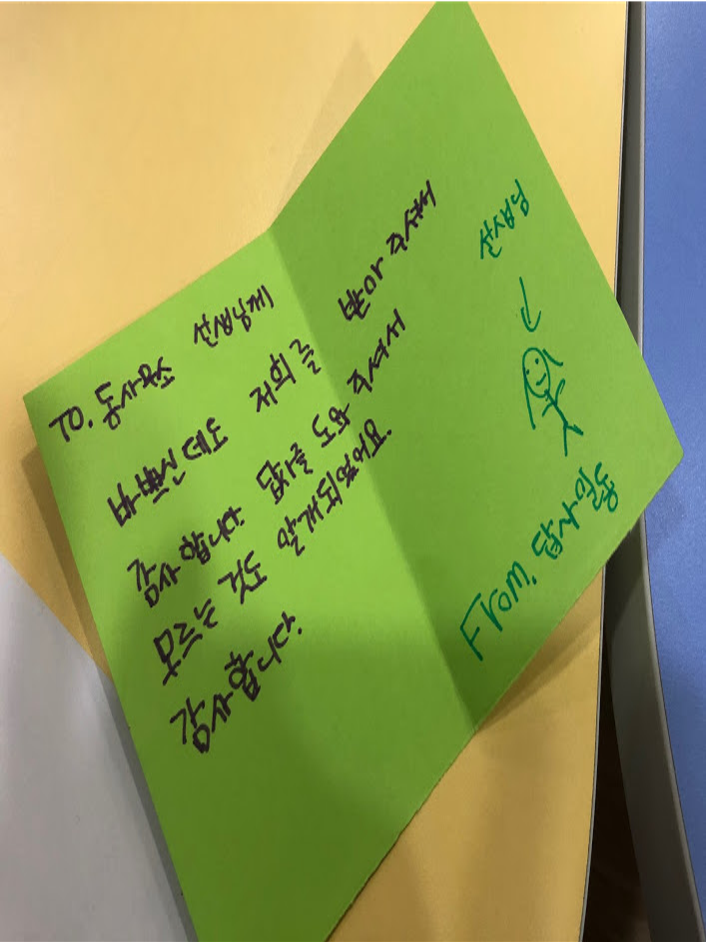 TO. 동사무소 선생님께
바쁘신데도 저희를 받아 주셔서
감사합니다. 답사를 도와 주셔서
모르는 것도 알게되었어요.
감사합니다.
선생님
↓
From. 답사일동